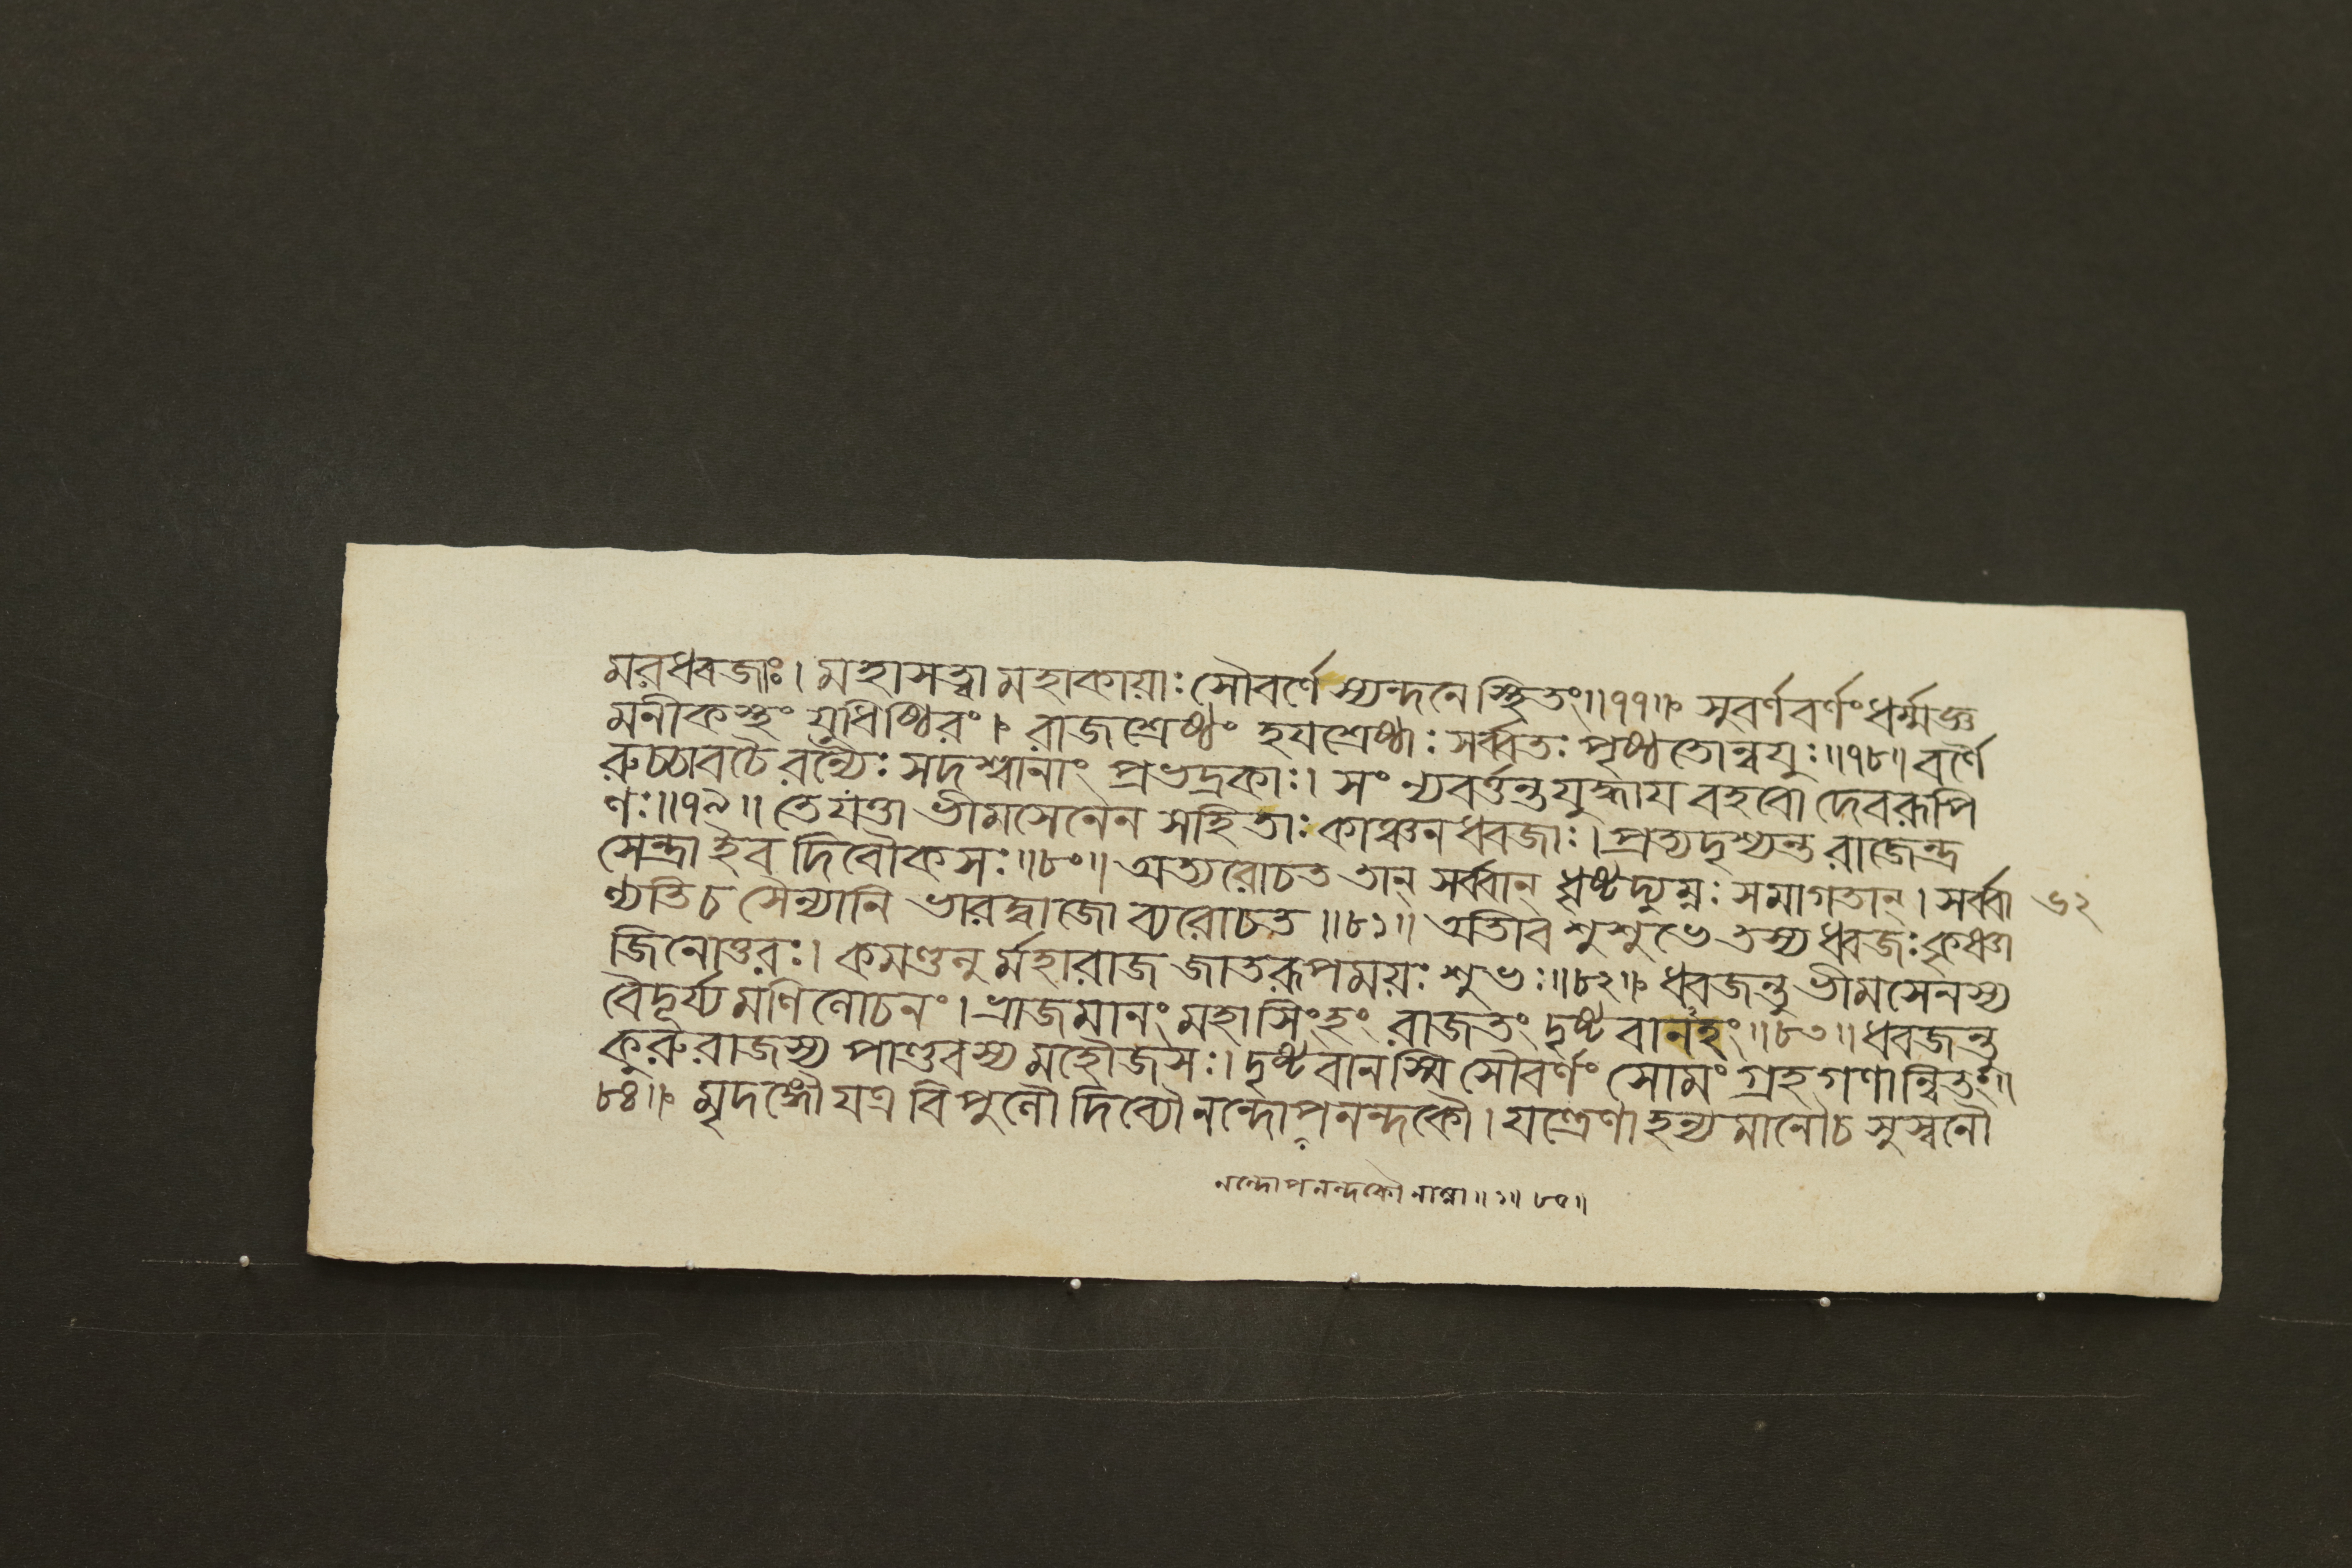 মরধ্বজাঃ। মহাসত্ত্বা মহাকায়াঃ সৌবর্ণে স্যন্দনে স্থিতং॥৭৭॥ সুবর্ণবর্ণং ধর্ম্মজ্ঞ
মনীকস্থং যুধিষ্ঠিরং। রাজশ্রেষ্ঠং হযশ্রেষ্ঠাঃ সর্ব্বতঃ পৃষ্ঠতোন্বযুঃ॥৭৮॥ বর্ণৈ
রুচ্চাবচৈ রন্যৈঃ সদশ্বানাং প্রভদ্রকাঃ। সংন্যবর্ত্তন্ত যুদ্ধায বহবো দেবরূপি
ণঃ॥৭৯॥ তে যত্তা ভীমসেনেন সহিতাঃ কাঞ্চনধ্বজাঃ। প্রত্যদৃশ্যন্ত রাজেন্দ্র
সেন্দ্রা ইব দিবৌকসঃ॥৮০॥ অত্যরোচত তান্ সর্ব্বান্ ধৃষ্টদ্যুম্নঃ সমাগতান্। সর্ব্বা ৬২
ণ্যতি চ সৈন্যানি ভারদ্বাজো ব্যরোচত॥৮১॥ অতীব শুশুভে তস্য ধ্বজঃ কৃষ্ণা
জিনোত্তরঃ। কমণ্ডলু র্মহারাজ জাতরূপময়ঃ শুভঃ॥৮২॥ ধ্বজন্তু ভীমসেনস্য
বৈদূর্য্যমণিলোচনং। ভ্রাজমানং মহাসিংহং রাজতং দৃষ্টবানহং॥৮৩॥ ধ্বজন্তু
কুরুরাজস্য পাণ্ডবস্য মহৌজসঃ। দৃষ্টবানস্মি সৌবর্ণং সোমং গ্রহগণান্বিতং॥
৮৪॥ মৃদঙ্গৌ যত্র বিপুলৌ দিব্যৌ নন্দোপনন্দকৌ। যন্ত্রেণাহন্যমানৌ চ সুস্বনৌ
নন্দোপনন্দকৌ নাম্না॥১॥ ৮৫॥